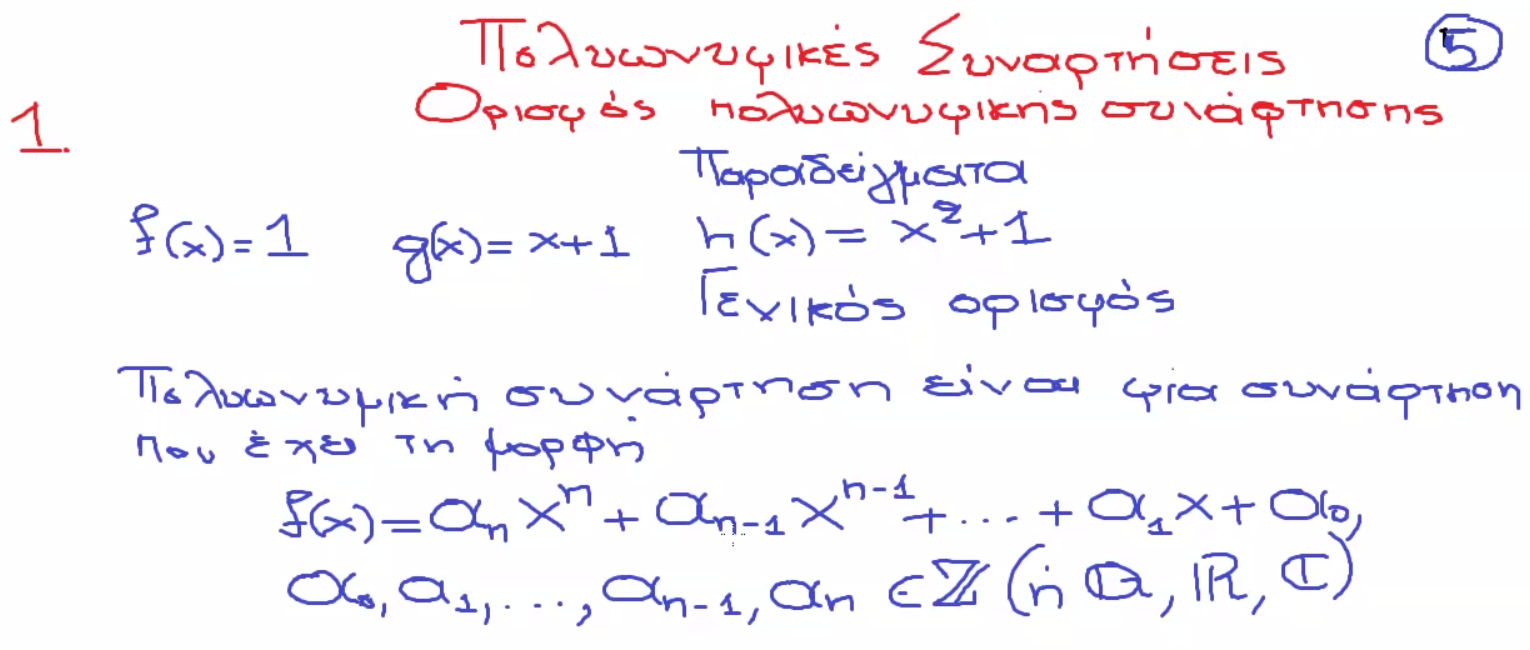 Πολυωνυμικές Συναρτήσεις 5
1. Ορισμός πολυωνυμικής συνάρτησης
Παραδείγματα
f(x)=1 g(x)=x+1 h(x)=x²+1
Γενικός ορισμός
Πολυωνυμική συνάρτηση είναι μία συνάρτηση
που έχει τη μορφή
f(x)=αₙxⁿ+αₙ₋₁xⁿ⁻¹+...+α₁x+α₀,
α₀,α₁,...,αₙ₋₁,αₙ ∈ℤ(ή ℚ,ℝ,ℂ)